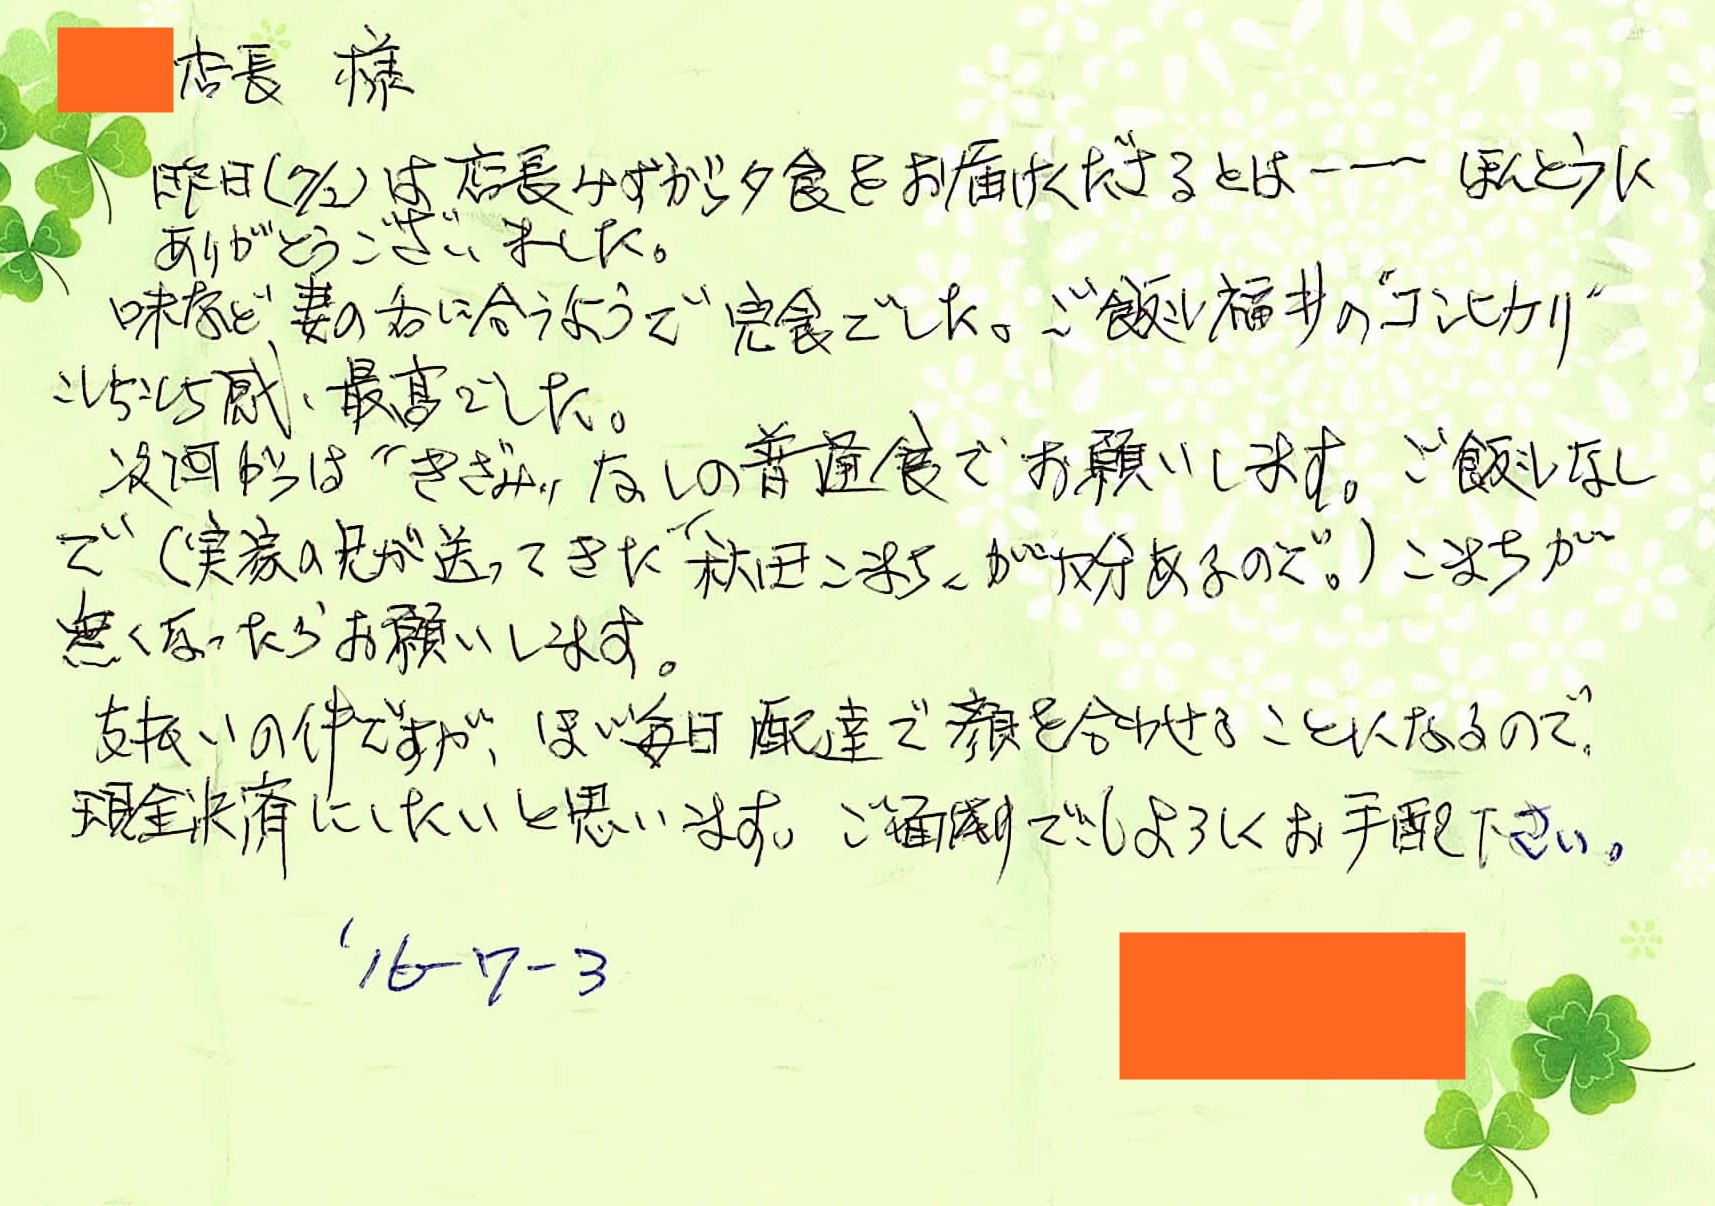 店長 様
昨日(7/2)は店長みずから夕食をお届けくださるとは――ほんとうに
ありがとうございました。
味など妻の右に合うようで完食でした。ご飯も福井の"コシヒカリ"
こしもちもち感、最高でした。
次回からは"きざみ"なしの普通食でお願いします。ご飯もなし
で(実家の兄が送ってきた"秋田こまち"が大分あるので。)こまちが
無くなったらお願いします。
支払いの件ですが、ほゞ毎日配達で顔を合わせることになるので、
現金決済にしたいと思います。ご面倒でもよろしくお手配下さい。
'16-7-3